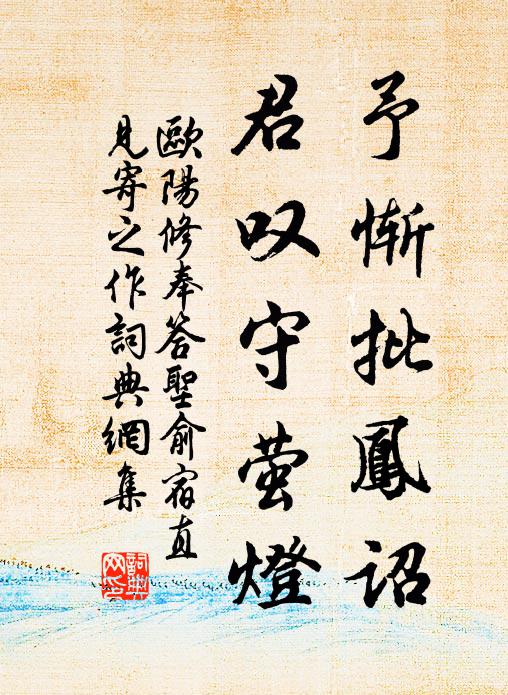 予惭批鳳詔
君叹守萤燈
歐陽修奉答聖俞宿直
見寄之作詞典網集